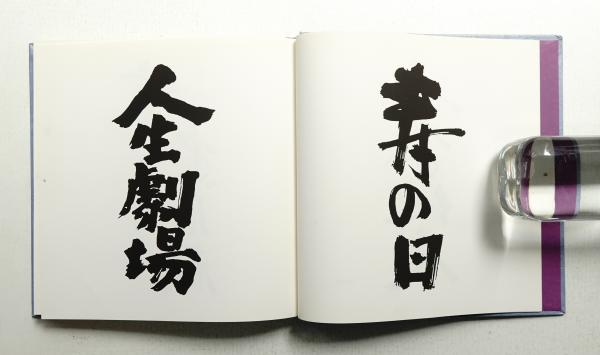 寿の日
人生劇場